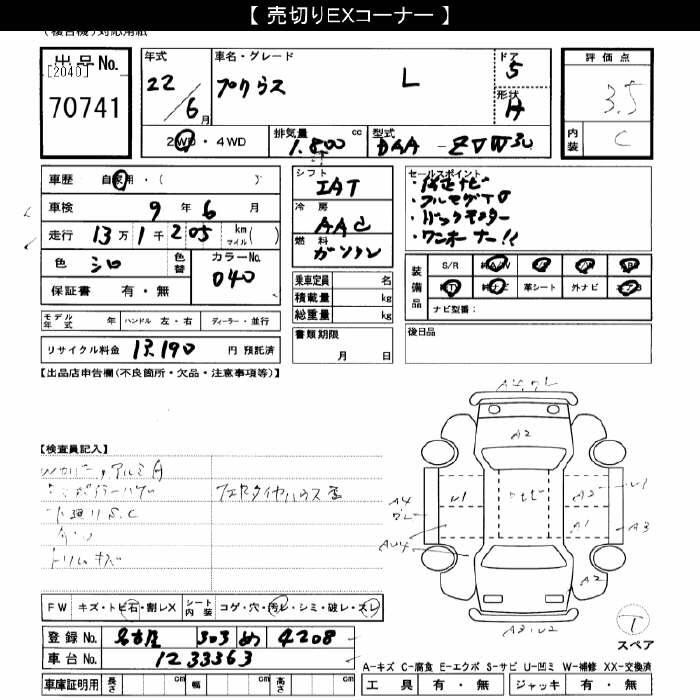 【 売切りEXコーナー 】
(複合機)対応用紙
出品No.
[2040]
70741
年式
22／6月
車名・グレード
プリウス L
ドア
5
形状
評価点
3.5
内装
C
2WD・4WD
排気量
1.800 cc
型式
DAA - ZVW30
車歴 自家用・( )
車検 9年 6月
走行 13万 1千 205 km マイル ( )
色 シロ
色替
カラーNo.
040
保証書 有・無
シフト
IAT
冷房
AAC
燃料
ガソリン
乗車定員 名
積載量 kg
総重量 kg
セールスポイント
・純正ナビ
・フルセグTV
・バックモニター
・ワンオーナー!!
装備品
S/R 純A/W P/S P/W ABS
純TV 純ナビ 革シート 外ナビ エアB
ナビ型番：
モデル年式 年 ハンドル 左・右 ディーラー・並行
リサイクル料金 13,190 円 預託済
書類期限
月 日
後日品
【出品店申告欄(不良箇所・欠品・注意事項等)】
【検査員記入】
下廻りS.C
トリムキズ
A2
U1
A4
A2
U1
A1
A3
A2
A3.U2
FW キズ・トビ石・割レX シート内装 コゲ・穴・汚レ・シミ・破レ・スレ
登録No. 名古屋 303 め 4208
車台No. 1233363
車庫証明用 長さ cm 幅 cm 高さ cm
T
スペア
A-キズ C-腐食 E-エクボ S-サビ U-凹ミ W-補修 XX-交換済
工具 有・無 ジャッキ 有・無